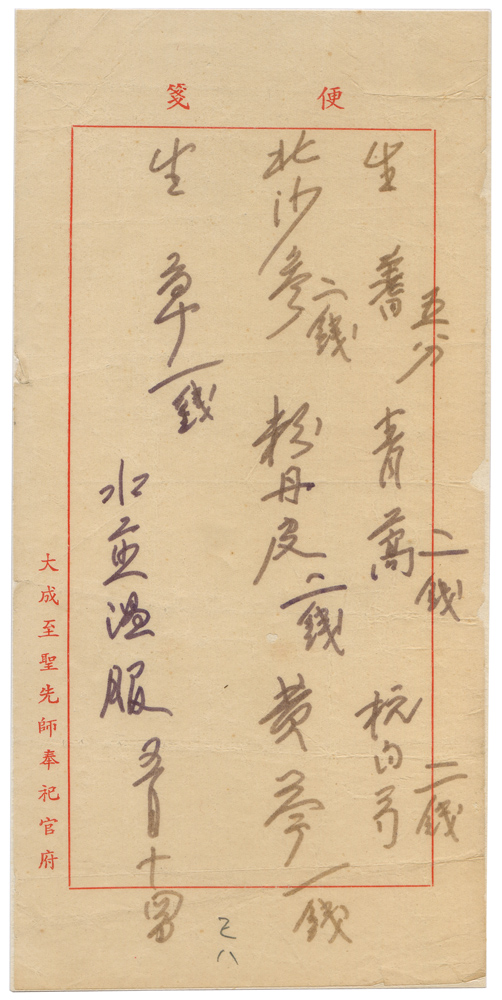 便箋
生蓍五分 青蒿二錢 杭白芍二錢
北沙參二錢 粉丹皮二錢 黃芩一錢
生草一錢
水煎溫服 五月十四日
大成至聖先師奉祀官府